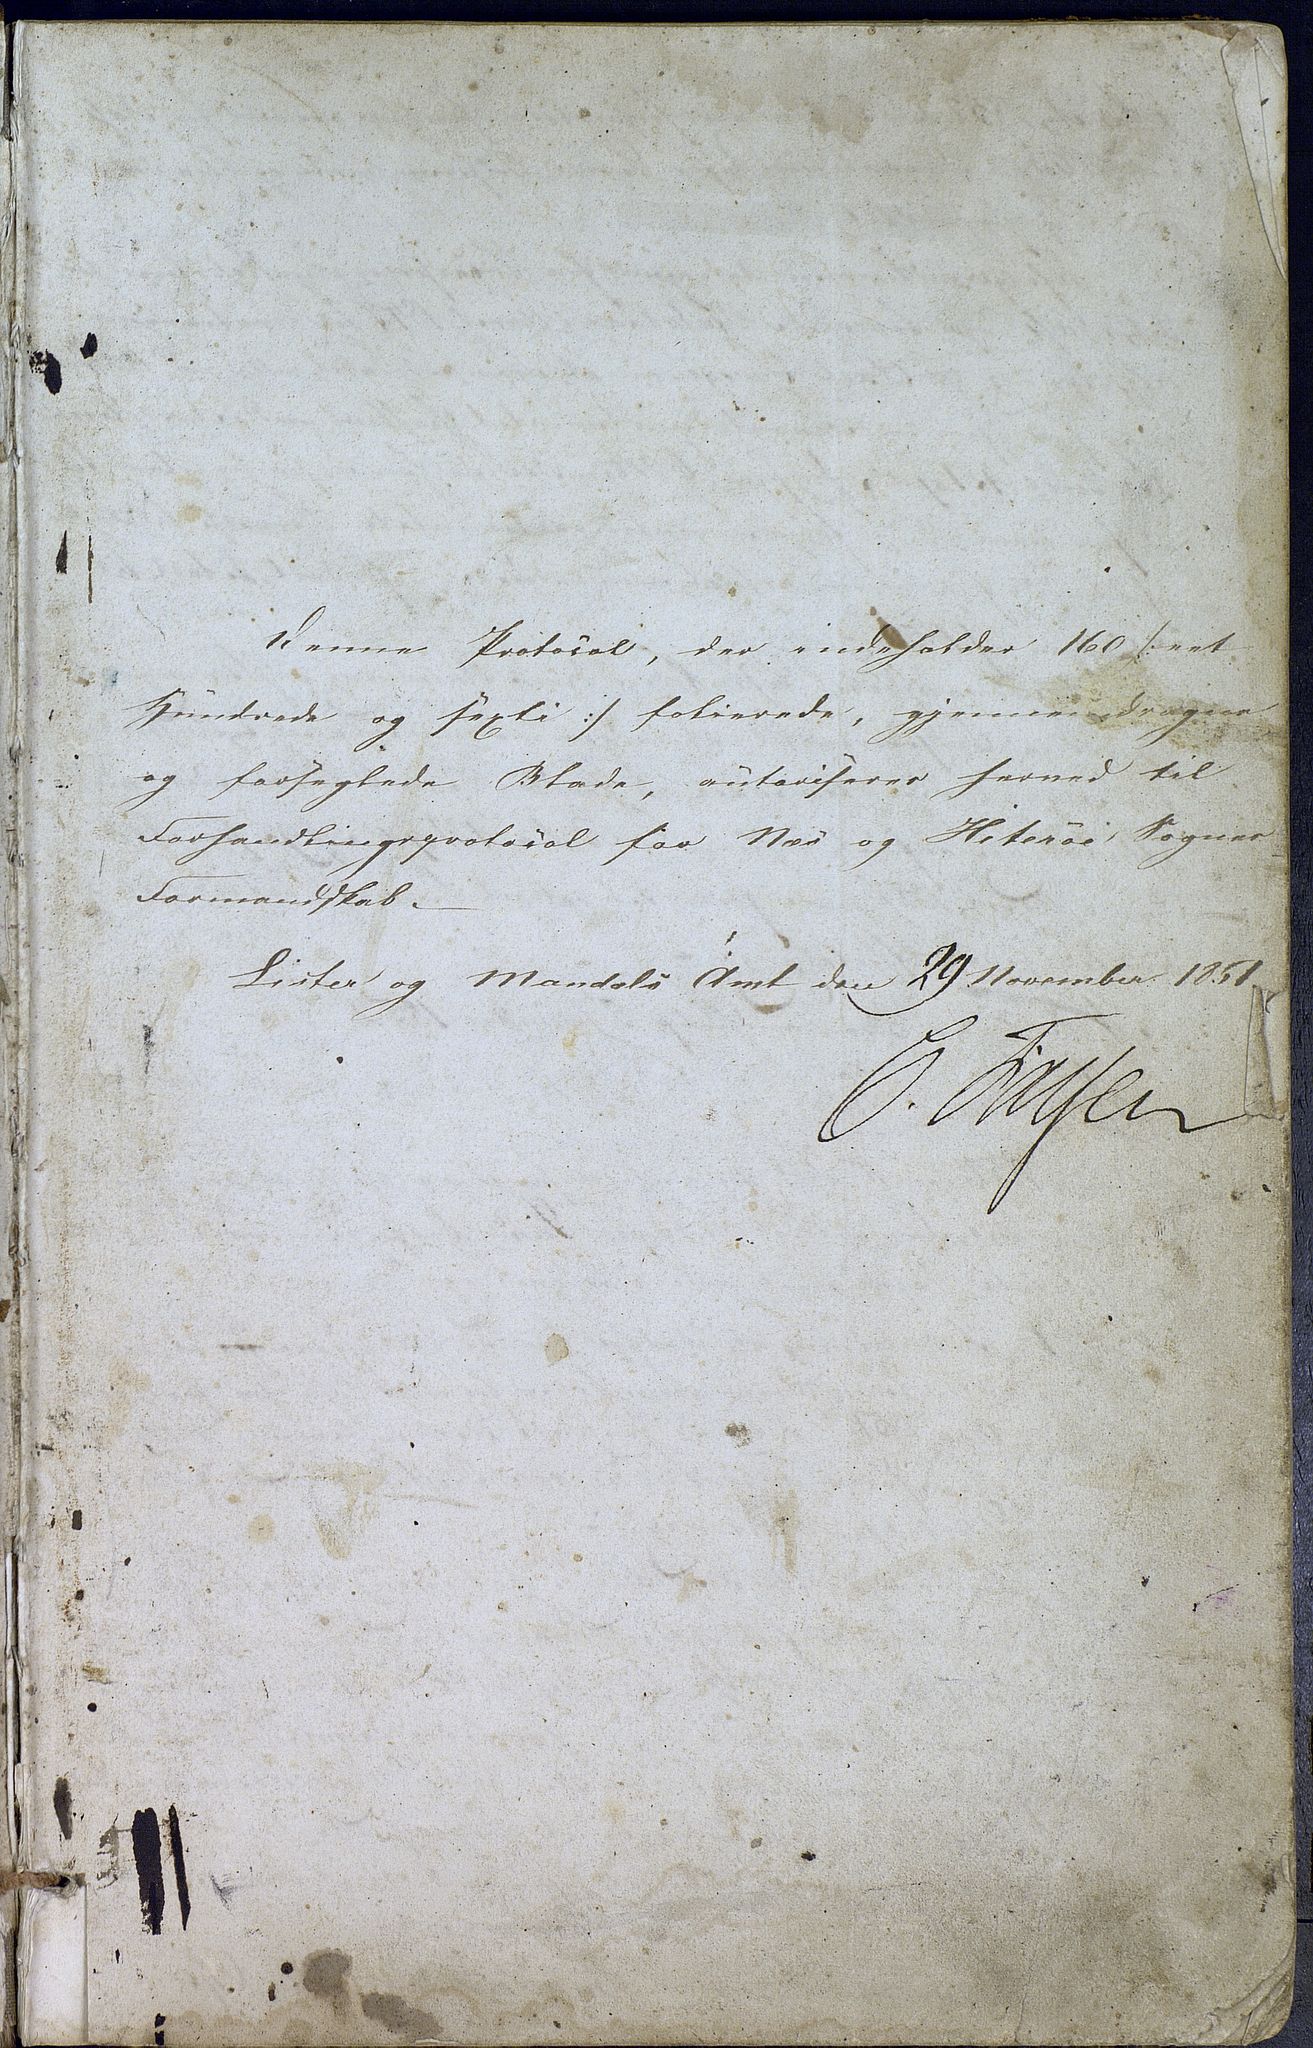 Denne Protocol, der indeholder 160 /: eet
Hundrede og sexti :/ folierede, gjennemdragne
og forseglede Blade, autoriseres herved til
Forhandlingsprotocol for Nes og Hiterøe Sognes
Formandskab.
Lister og Mandals Amt den 29 November 1851.